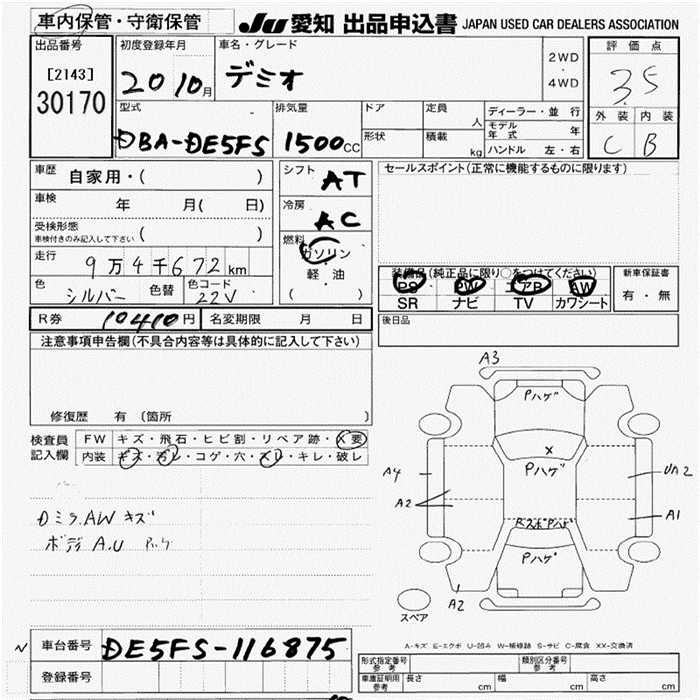 車内保管・守衛保管 JU 愛知 出品申込書 JAPAN USED CAR DEALERS ASSOCIATION
出品番号 初度登録年月 車名・グレード 2WD ・ 4WD 評価点
[2143] 20 10月 デミオ 3.5
30170
型式 排気量 ドア 定員 人 ディーラー・並行 外装 内装
DBA-DE5FS 1500CC 形状 積載 kg モデル年式 年 C B
ハンドル 左・右
車歴 自家用・( ) シフト AT セールスポイント(正常に機能するものに限ります)
車検 年 月( 日) 冷房 AC
受検形態 車検付きのみ記入して下さい ( )
燃料 ガソリン ・ 軽・油 ( )
走行 9万4千672km
装備品(純正品に限り○をつけてください) 新車保証書
色 シルバー 色替 色コード 22V
PS PW エアB AW 有・無
SR ナビ TV カワシート
R券 10410円 名変期限 月 日 後日品
注意事項申告欄(不具合内容等は具体的に記入して下さい)
修復歴 有 (箇所 )
検査員記入欄 FW キズ・飛石・ヒビ割・リペア跡・X要
内装 キズ・汚レ・コゲ・穴・スレ・キレ・破レ
Dミラ.AW キズ
ボディ A.U
A3
Pハゲ
X
Pハゲ
A4 UA2
A2 A1
RスポPハゲ
Pハゲ
A2
スペア
A-キズ E-エクボ U-凹み W-補修跡 S-サビ C-腐食 XX-交換済
車台番号 DE5FS-116875
登録番号
形式指定番号 参考 類別区分番号 参考
車庫証明用 参考 長さ cm 幅 cm 高さ cm